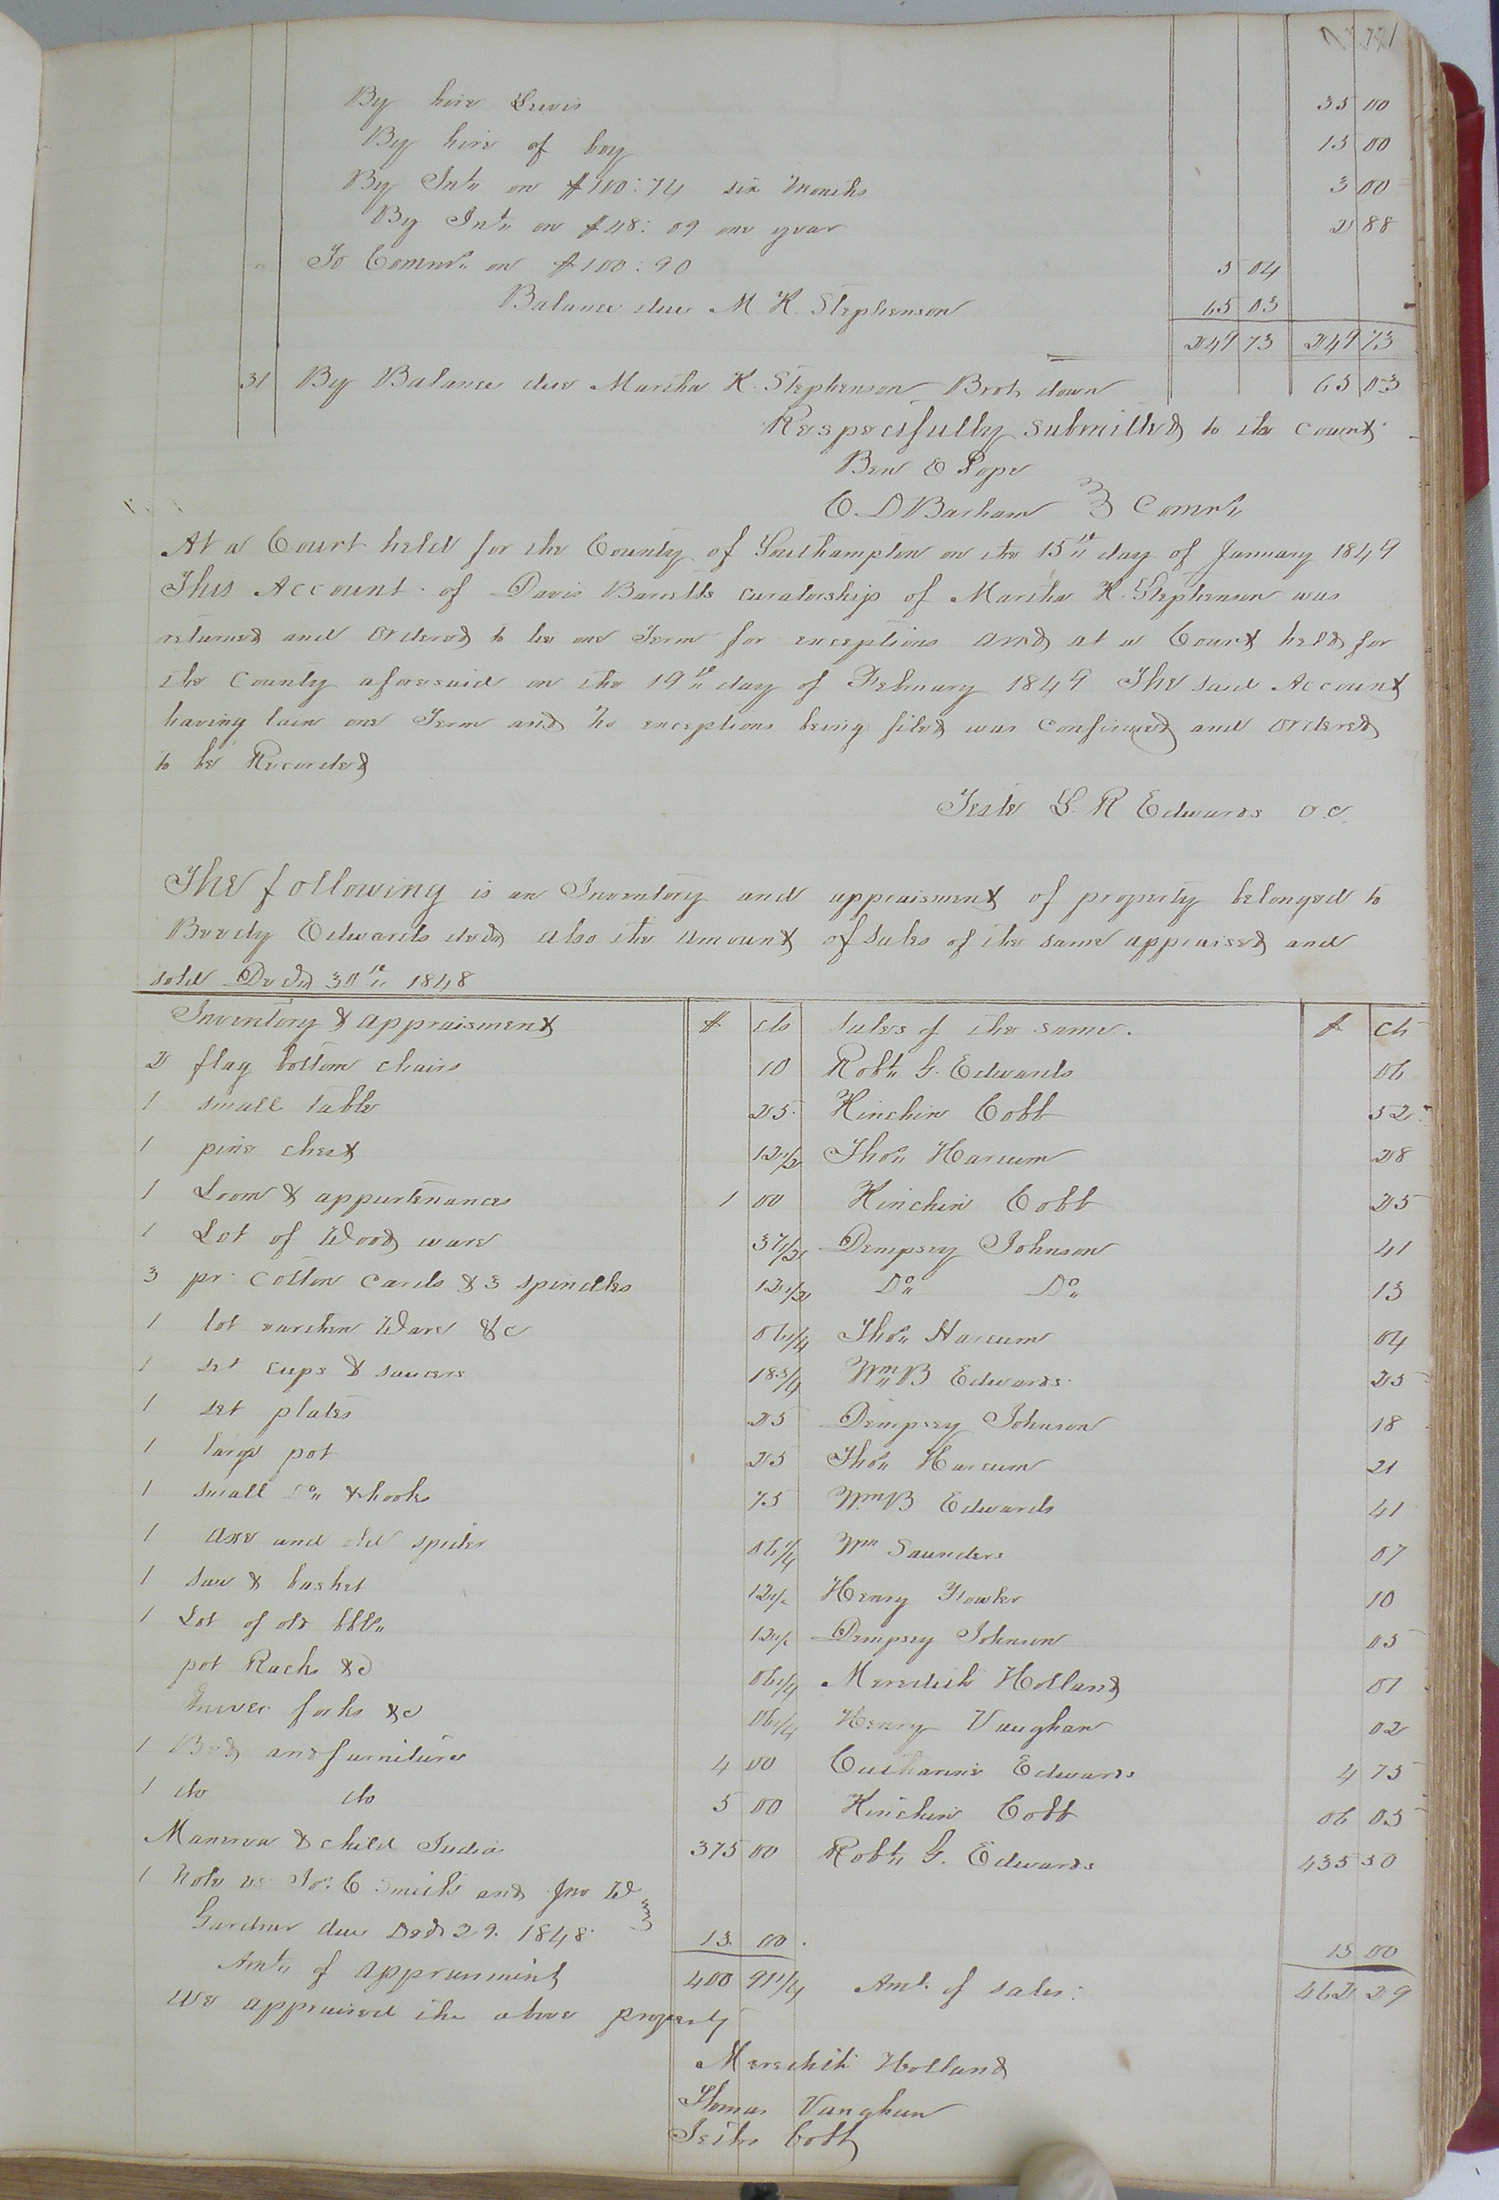 By hire Lewis 35 00
By hire of boy 15 00
By Int. on $100:74 six Months 3 00
By Int. on $48:09 one year 2 88
" To Comms. on $100:90 5 04
Balance due M. K. Stephenson 65 03
249 73 249 73
31 By Balance due Martha K. Stephenson Brot. down 65 03
Respectfully submitted to the Court
Ben E Pope
E. D Barham } Comrs.
At a Court held for the County of Southampton on the 15th day of January 1849
This Account of Davis Barretts curatorship of Martha K. Stephenson was
returned and ordered to lie one Term for exceptions and at a Court held for
the County aforesaid on the 19th day of February 1849 The said Account
having lain one Term and no exceptions being filed was Confirmed and ordered
to be Recorded
Teste L. R Edwards C.C.
The following is an Inventory and appraisment of property belonged to
Edwards decd also the amount of Sales of the same appraised and
sold Decd 30th 1848
Inventory & appraisment $ cts Sales of the same. $ cts
2 flag bottom chairs 10 Robt. G. Edwards 06
1 small table 25 Kinchin Cobb 52
1 pine chest 12 1/2 Thos. Harcum 28
1 Loom & appurtenances 1 00 Kinchin Cobb 25
1 Lot of Wood ware 37 1/2 Dempsey Johnson 41
3 pr. Cotton Cards & 3 spindles 12 1/2 Do. Do. 13
1 lot earthen Ware &c 06 1/4 Thos. Harcum 04
1 set cups & saucers 18 3/4 Wm B Edwards 25
1 set plates 25 Dempsey Johnson 18
1 large pot 25 Thos. Harcum 21
1 small Do. & hooks 75 Wm B Edwards 41
1 axe and old spider 06 1/4 Wm Saunders 07
1 saw & basket 12 1/2 Henry Fowler 10
1 Lot of old bbls. 12 1/2 Dempsey Johnson 05
pot Racks &c 06 1/4 Meredith Holland 01
knives forks &c 06 1/4 Henry Vaughan 02
1 Bed and furniture 4 00 Catharine Edwards 4 75
1 do do 5 00 Kinchin Cobb 06 05
Manerva & child India 375 00 Robt. G. Edwards 435 50
1 Note vs Jos. C Smith and Jno W
Gardner due Decd 29. 1848 } 13 00 13 00
Amt. of appraisment 400 91 1/4 Amt. of sales: 462 29
We appraised the above property
Meredith Holland
Thomas Vaughan
Cobb